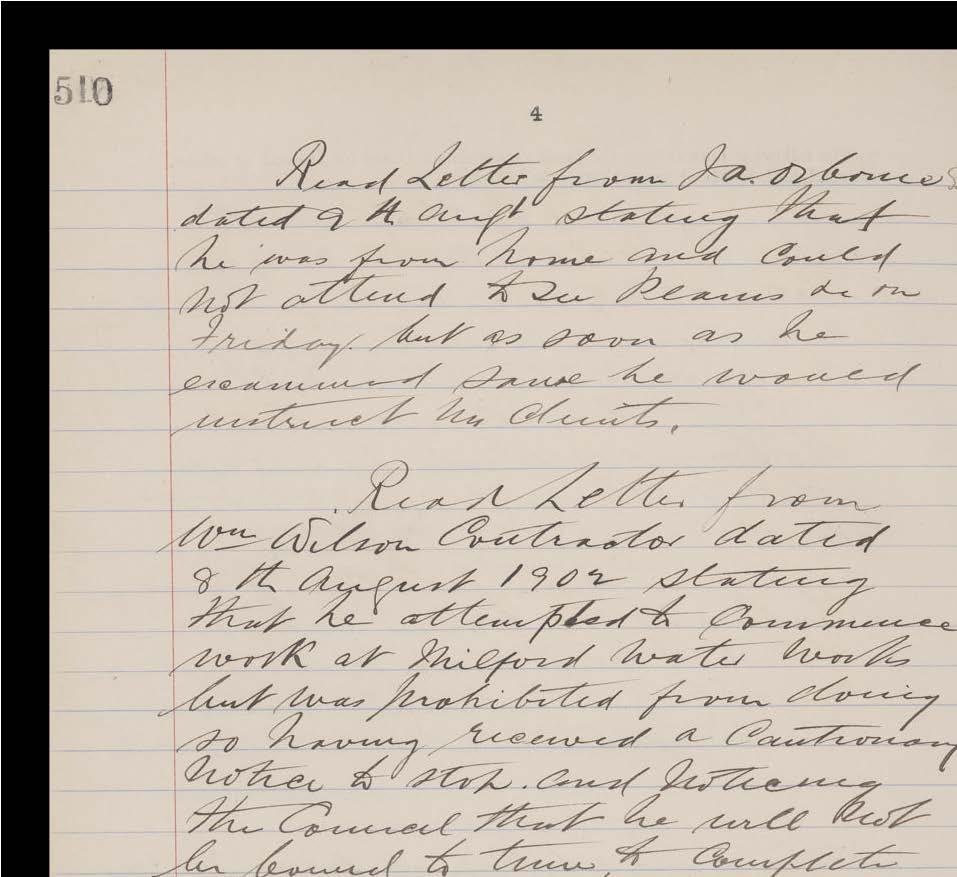 510
4
Read Letter from J A. Osborne
dated 9th Augt stating that
he was from home and could
not attend to see Plans &c on
Friday. but as soon as he
examined same he would
instruct his Clients.
Read Letter from
Wm Wilson Contractor dated
8th August 1902 stating
that he attempted to Commence
work at Milford Water Works
but was prohibited from doing
so having received a Cautionary
Notice to stop. and Noticing
the Council that he will Not
be bound to time, to Complete